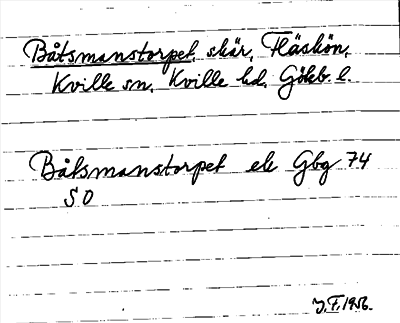 Båtsmanstorpet, skär, Fläskön,
Kville sn, Kville hd, Göteb. l.
Båtsmanstorpet ek Gbg 74
SO
J.F. 1956.